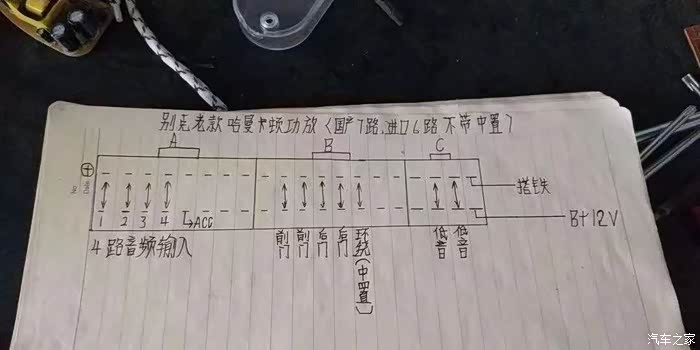 别克老款哈曼卡顿功放(国产7路,进口6路不带中置)
A B C
搭铁
B+12V
1 2 3 4 ACC
4路音频输入
前门 前门 后门 后门 环绕(中置) 低音 低音
No
Date
汽车之家